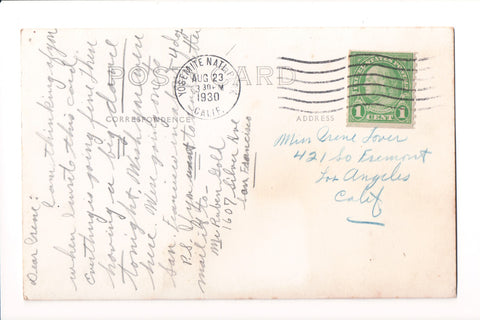 POST CARD
CORRESPONDENCE
ADDRESS
YOSEMITE NAT'L PARK
AUG 23
1930
CALIF.
1 CENT 1
Miss Irene Lover
421 So Fremont
Los Angeles
Calif
Dear Irene:
I am thinking of you
when I wrote this card
Everything is going fine. Have
having a big dance
tonight. Wish you were
here. Were going to
San Francisco in 4 days
P.S. If you want to
mail it to -
Mr Ruben Gold
1607 Silver Ave
San Francisco